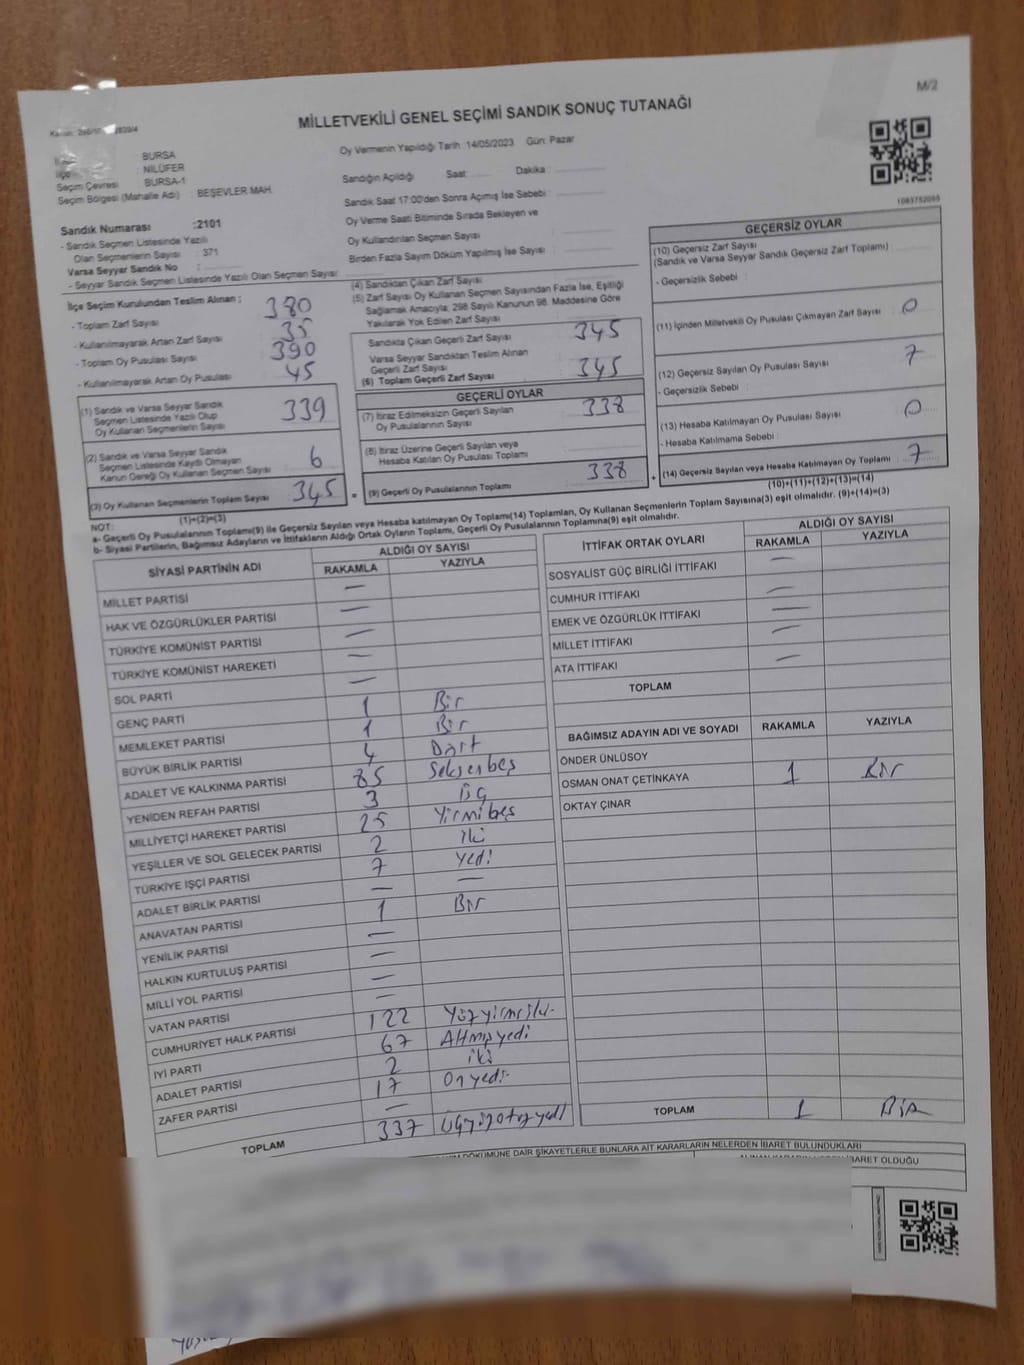 M/2
MİLLETVEKİLİ GENEL SEÇİMİ SANDIK SONUÇ TUTANAĞI
BURSA
NİLÜFER
Seçim Çevresi BURSA-1
Seçim Bölgesi (Mahalle Adı) : BEŞEVLER MAH.
Sandık Numarası :2101
- Sandık Seçmen Listesinde Yazılı
Olan Seçmenlerin Sayısı : 371
Varsa Seyyar Sandık No :
- Seyyar Sandık Seçmen Listesinde Yazılı Olan Seçmen Sayısı :
Oy Vermenin Yapıldığı Tarih :14/05/2023 Gün: Pazar
Sandığın Açıldığı Saat: Dakika :
Sandık Saat 17:00'den Sonra Açımış İse Sebebi :
Oy Verme Saati Bitiminde Sırada Bekleyen ve
Oy Kullandırılan Seçmen Sayısı :
Birden Fazla Sayım Döküm Yapılmış İse Sayısı :
1083752095
İlçe Seçim Kurulundan Teslim Alınan :
- Toplam Zarf Sayısı 380
- Kullanılmayarak Artan Zarf Sayısı 35
- Toplam Oy Pusulası Sayısı 390
- Kullanılmayarak Artan Oy Pusulası 45
(1) Sandık ve Varsa Seyyar Sandık
Seçmen Listesinde Yazılı Olup
Oy Kullanan Seçmenlerin Sayısı 339
(2) Sandık ve Varsa Seyyar Sandık
Seçmen Listesinde Kaydı Olmayan
Kanun Gereği Oy Kullanan Seçmen Sayısı 6
(3) Oy Kullanan Seçmenlerin Toplam Sayısı 345
(1)+(2)=(3)
(4) Sandıktan Çıkan Zarf Sayısı
(5) Zarf Sayısı Oy Kullanan Seçmen Sayısından Fazla İse, Eşitliği
Sağlamak Amacıyla, 298 Sayılı Kanunun 98. Maddesine Göre
Yakılarak Yok Edilen Zarf Sayısı
Sandıkta Çıkan Geçerli Zarf Sayısı 345
Varsa Seyyar Sandıktan Teslim Alınan
Geçerli Zarf Sayısı
(6) Toplam Geçerli Zarf Sayısı 345
GEÇERLİ OYLAR
(7) İtiraz Edilmeksizin Geçerli Sayılan
Oy Pusulalarının Sayısı 338
(8) İtiraz Üzerine Geçerli Sayılan veya
Hesaba Katılan Oy Pusulası Toplamı
= (9) Geçerli Oy Pusulalarının Toplamı 338
GEÇERSİZ OYLAR
(10) Geçersiz Zarf Sayısı
(Sandık ve Varsa Seyyar Sandık Geçersiz Zarf Toplamı) :
- Geçersizlik Sebebi :
(11) İçinden Milletvekili Oy Pusulası Çıkmayan Zarf Sayısı : 0
(12) Geçersiz Sayılan Oy Pusulası Sayısı : 7
- Geçersizlik Sebebi :
(13) Hesaba Katılmayan Oy Pusulası Sayısı : 0
- Hesaba Katılmama Sebebi :
+ (14) Geçersiz Sayılan veya Hesaba Katılmayan Oy Toplamı : 7
(10)+(11)+(12)+(13)=(14)
NOT:
a- Geçerli Oy Pusulalarının Toplamı(9) ile Geçersiz Sayılan veya Hesaba katılmayan Oy Toplamı(14) Toplamları, Oy Kullanan Seçmenlerin Toplam Sayısına(3) eşit olmalıdır. (9)+(14)=(3)
b- Siyasi Partilerin, Bağımsız Adayların ve İttifakların Aldığı Ortak Oyların Toplamı, Geçerli Oy Pusulalarının Toplamına(9) eşit olmalıdır.
SİYASİ PARTİNİN ADI ALDIĞI OY SAYISI
RAKAMLA YAZIYLA
MİLLET PARTİSİ —
HAK VE ÖZGÜRLÜKLER PARTİSİ —
TÜRKİYE KOMÜNİST PARTİSİ —
TÜRKİYE KOMÜNİST HAREKETİ —
SOL PARTİ —
GENÇ PARTİ 1 Bir
MEMLEKET PARTİSİ 1 Bir
BÜYÜK BİRLİK PARTİSİ 4 Dört
ADALET VE KALKINMA PARTİSİ 85 Seksenbeş
YENİDEN REFAH PARTİSİ 3 Üç
MİLLİYETÇİ HAREKET PARTİSİ 25 Yirmibeş
YEŞİLLER VE SOL GELECEK PARTİSİ 2 iki
TÜRKİYE İŞÇİ PARTİSİ 7 yedi
ADALET BİRLİK PARTİSİ — —
ANAVATAN PARTİSİ 1 Bir
YENİLİK PARTİSİ —
HALKIN KURTULUŞ PARTİSİ —
MİLLİ YOL PARTİSİ —
VATAN PARTİSİ —
CUMHURİYET HALK PARTİSİ 122 Yüzyirmiiki
İYİ PARTİ 67 Altmışyedi
ADALET PARTİSİ 2 iki
ZAFER PARTİSİ 17 Onyedi
—
TOPLAM 337 Üçyüzotuzyedi
İTTİFAK ORTAK OYLARI ALDIĞI OY SAYISI
RAKAMLA YAZIYLA
SOSYALİST GÜÇ BİRLİĞİ İTTİFAKI —
CUMHUR İTTİFAKI —
EMEK VE ÖZGÜRLÜK İTTİFAKI —
MİLLET İTTİFAKI —
ATA İTTİFAKI —
TOPLAM
BAĞIMSIZ ADAYIN ADI VE SOYADI RAKAMLA YAZIYLA
ÖNDER ÜNLÜSOY
OSMAN ONAT ÇETİNKAYA 1 Bir
OKTAY ÇINAR
TOPLAM 1 Bir
DÖKÜMÜNE DAİR ŞİKAYETLERLE BUNLARA AİT KARARLARIN NELERDEN İBARET BULUNDUKLARI
İBARET OLDUĞU